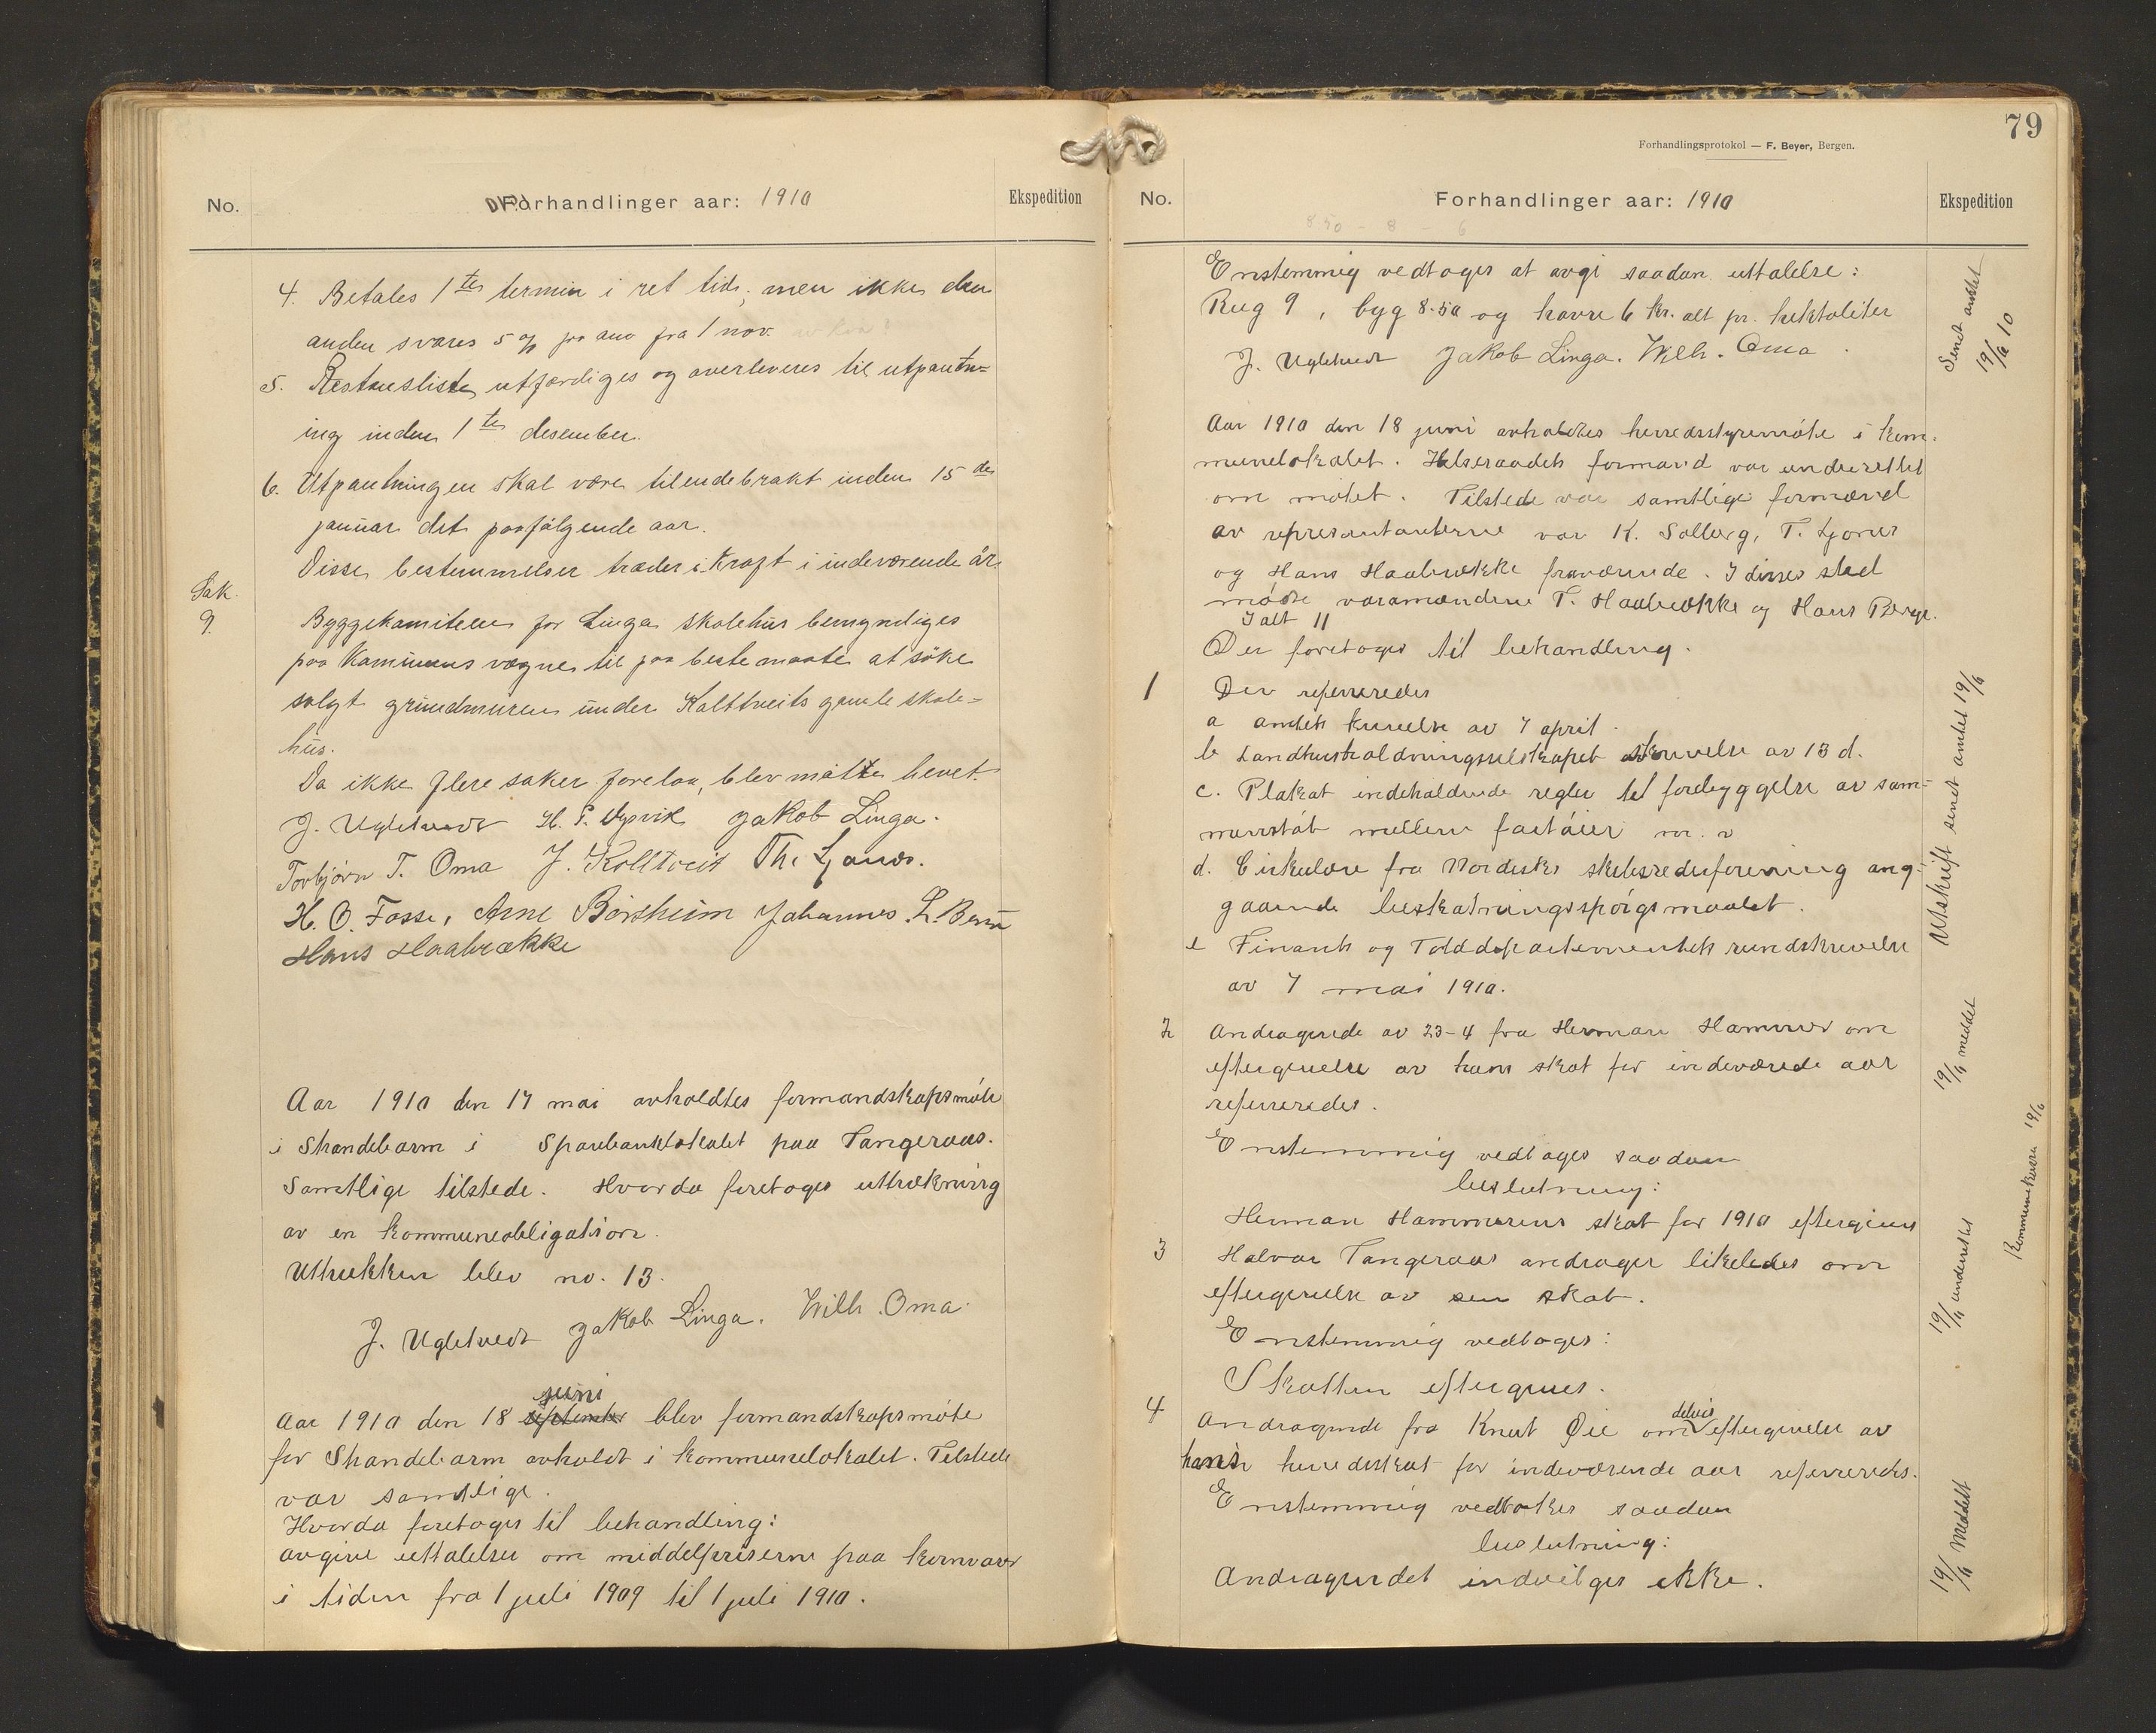 No.
Forhandlinger aar: 1910
Ekspedition
4. Betales 1ste termin i ret tid, men ikke den
anden svares 5 % pro ano fra 1 nov.
5. Restanseliste utfærdiges og overleveres til utpantn=
ing inden 1ste desember.
6. Utpantningen skal være tilendebrakt inden 15de
januar det paafölgende aar.
Disse bestemmelser træder i kraft i indeværende år.
Sak
9.
Byggekomiteen for Linga skolehus bemyndiges
paa kommunens vegne til paa beste maate at söke
solgt grundmuren under Kolltveits gamle skole=
hus.
Da ikke flere saker forelaa, blev mötte hevet.
J. Ugletveit H. P. Dysvik Jakob Linga.
Torbjörn T. Oma J. Kolltveit Th. Ljones.
H. O. Fosse, Arne Börsheim Johannes L. Berge
Hans Haabrække
Aar 1910 den 17 mai avholdtes formandskapsmöte
i Strandebarm i Sparebanklokalet paa Tangeraas.
Samtlige tilstede. Hvorda foretoges uttrækning
av en kommuneobligation.
Uttrukken blev no. 13.
J. Ugletveit Jakob Linga. Wilh. Oma.
juni
Aar 1910 den 18 september blev formandskapsmöte
for Strandebarm avholdt i kommunelokalet. Tilstede
var samtlige.
Hvorda foretoges til behandling:
avgive uttalelse om middelpriserne paa kornvarer
i tiden fra 1 juli 1909 til 1 juli 1910.
79
Forhandlingsprotokol — F. Beyer, Bergen.
No.
Forhandlinger aar: 1910
Ekspedition
8.50 - 8 - 6
Enstemmig vedtoges at avgi saadan uttalelse:
Rug 9, byg 8.50 og havre 6 kr. alt pr. hektoliter
J. Ugletveit Jakob Linga. Wilh. Oma.
Sendt amtet
19/6 10
Aar 1910 den 18 juni avholdtes herredsstyremöte i kom-
munelokalet. Helseraadets formand var underrettet
om mötet. Tilstede var samtlige formænd
av representanterne var K. Solberg, T. Ljones
og Hans Haabrække fraværende. I disses sted
mödte varamændene T. Haabrække og Hans Berge.
Ialt 11
Der foretoges til behandling.
1 Der refereredes
a amtets skrivelse av 7 april.
b Landhusholdningsselskapets skrivelse av 13 d.
c. Plakat indeholdende regler til forebyggelse av sam-
menstöt mellem fartöier m. v
d. Cirkulære fra Nordisk skibsrederforening ang-
gaaende beskatningsspörgsmaalet.
e Finants og Tolddepartementets rundskrivelse
av 7 mai 1910.
Utskrift sendt amtet 19/6
2 Andragende av 23-4 fra Herman Hammer om
eftergivelse av hans skat for indeværende aar
refereredes.
19/6 meddelt
Enstemmig vedtoges saadan
beslutning:
Herman Hammerens skat for 1910 eftergives
3 Halvor Tangeraas andrager likeledes om
eftergivelse av sin skat.
19/6 underrettet
Kommunekasse 19/6
Enstemmig vedtoges:
Skatten eftergives.
4 Andragende fra Knut Øie om delvis eftergivelse av
hans herredsskat for indeværende aar refereredes.
Enstemmig vedtokes saadan
beslutning:
Andragendet indvilges ikke.
19/6 Meddelt